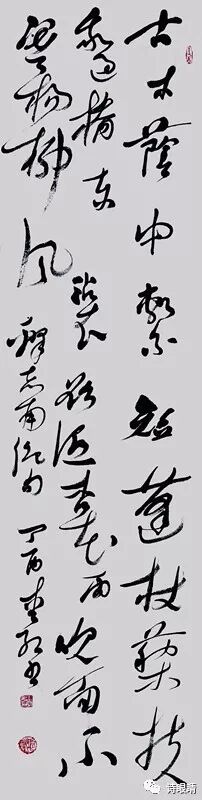 古木蔭中繫短蓬杖藜扶
我過橋東沾衣欲湿杏花雨吹面不
寒楊柳风
釋志南絶句丁酉
诗眼睛